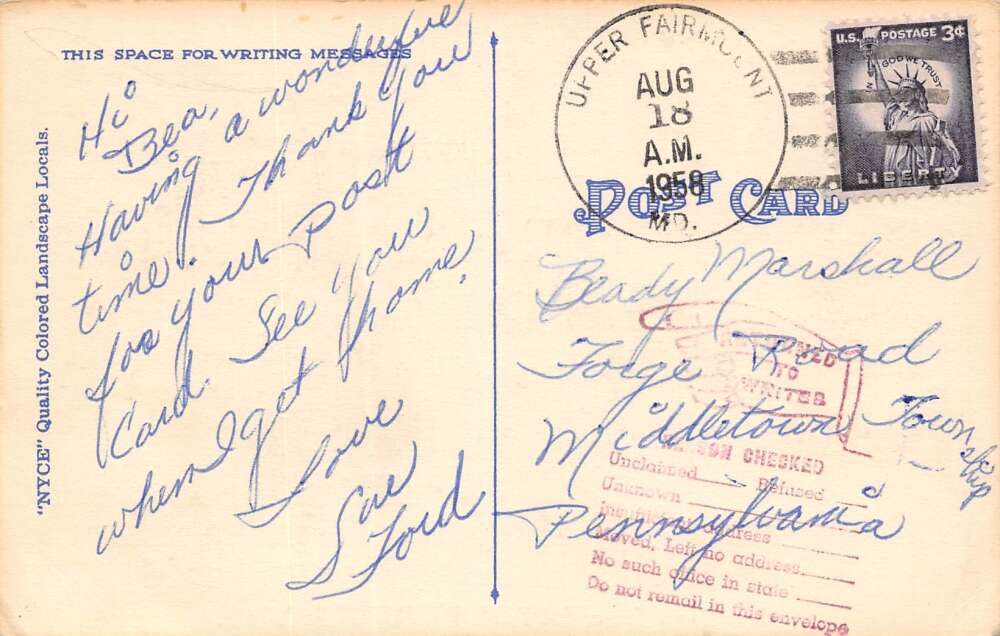 THIS SPACE FOR WRITING MESSAGES
"NYCE" Quality Colored Landscape Locals.
Hi
Bea,
Having a wonderful
time. Thank you
for your post
Card. See you
when I get home.
Love
Sue
Ford
UPPER FAIRMOUNT
AUG
18
A.M.
1958
MD.
U.S. POSTAGE 3¢
IN GOD WE TRUST
LIBERTY
POST CARD
Beady Marshall
Forge Road
Middletown Township
Pennsylvania
RETURNED
TO
WRITER
REASON CHECKED
Unclaimed Refused
Unknown
Insufficient address
Moved, Left no address
No such office in state
Do not remail in this envelope